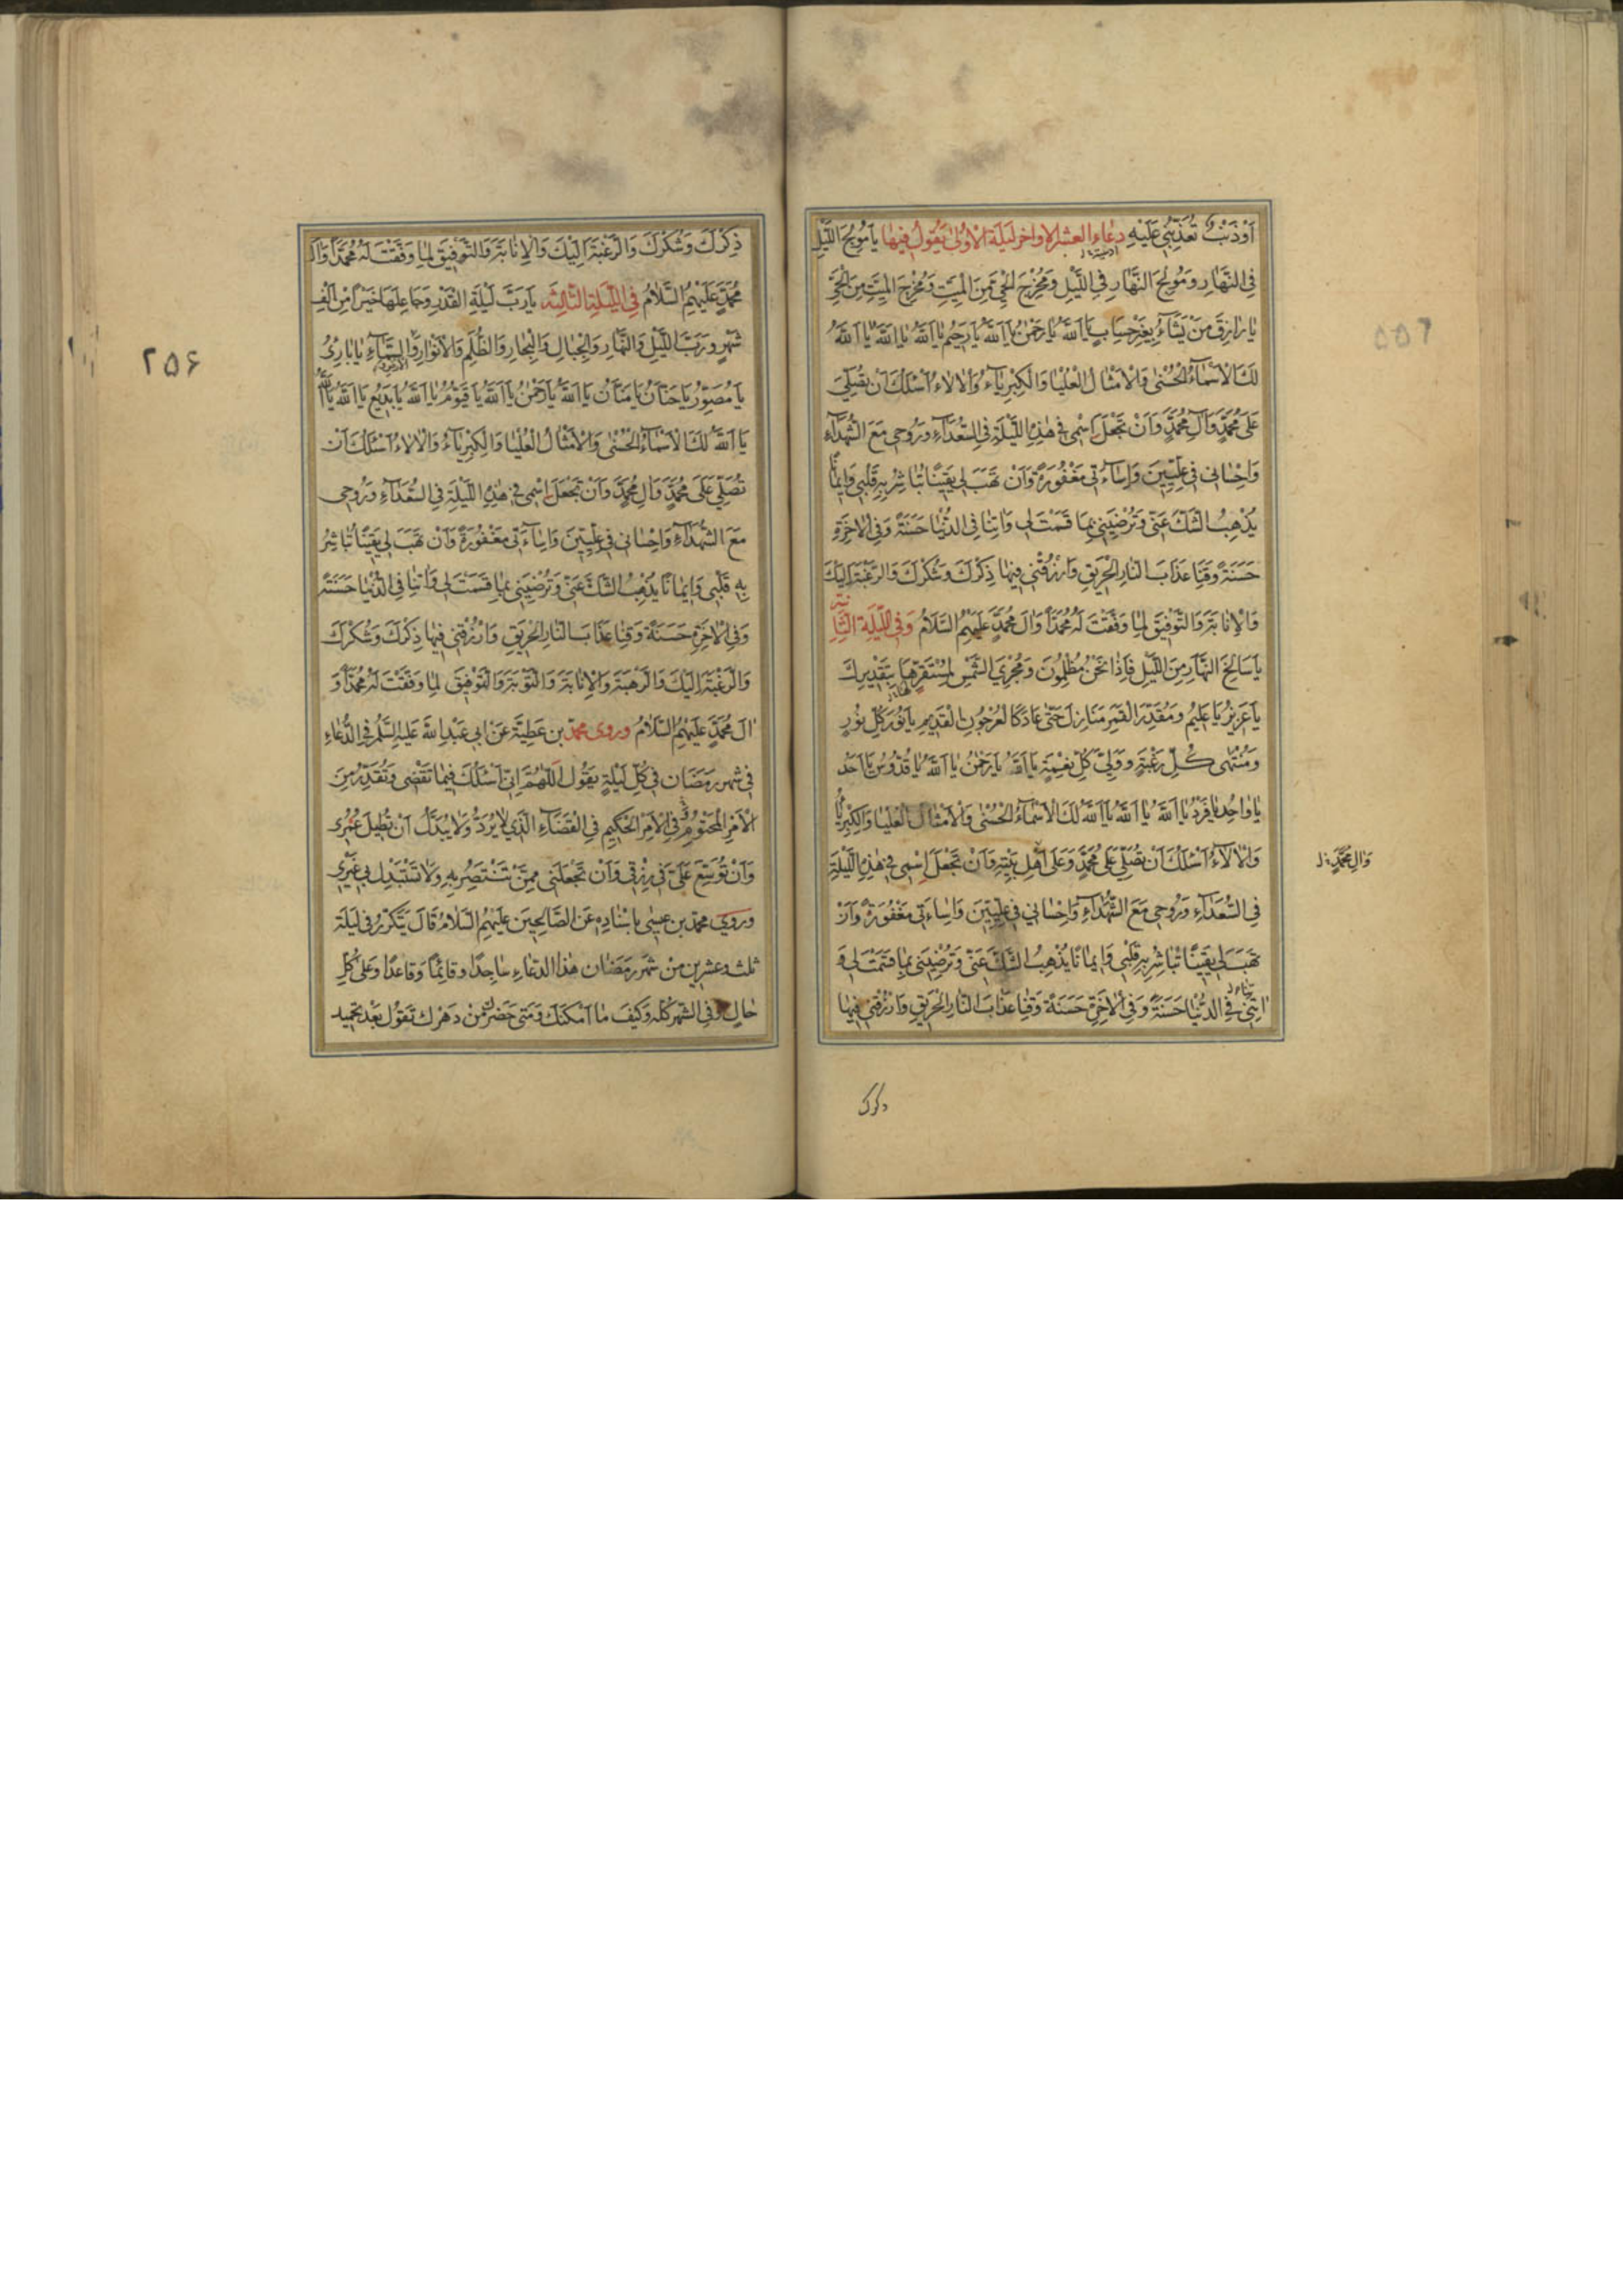 أَوْ ذَنْبٌ تُعَذِّبُنِي عَلَيْهِ دعاء العشر الاواخر ليلة الاولى يقول فيها يَا مُولِجَ اللَّيْلِ
فِي النَّهَارِ وَمُولِجَ النَّهَارِ فِي اللَّيْلِ وَمُخْرِجَ الْحَيِّ مِنَ الْمَيِّتِ وَمُخْرِجَ الْمَيِّتِ مِنَ الْحَيِّ
يَا رَازِقَ مَنْ يَشَاءُ بِغَيْرِ حِسَابٍ يَا اَللّٰهُ يَا رَحْمٰنُ يَا اَللّٰهُ يَا رَحِيمُ يَا اَللّٰهُ يَا اَللّٰهُ يَا اَللّٰهُ
لَكَ الْاَسْمَاءُ الْحُسْنٰى وَالْاَمْثَالُ الْعُلْيَا وَالْكِبْرِيَاءُ وَالْاٰلَاءُ اَسْئَلُكَ اَنْ تُصَلِّيَ
عَلٰى مُحَمَّدٍ وَاٰلِ مُحَمَّدٍ وَاَنْ تَجْعَلَ اسْمِي فِي هٰذِهِ اللَّيْلَةِ فِي السُّعَدَاءِ وَرُوحِي مَعَ الشُّهَدَاءِ
وَاِحْسَانِي فِي عِلِّيِّينَ وَاِسَاءَتِي مَغْفُورَةً وَاَنْ تَهَبَ لِي يَقِينًا تُبَاشِرُ بِهِ قَلْبِي وَاِيمَانًا
يُذْهِبُ الشَّكَّ عَنِّي وَتُرْضِيَنِي بِمَا قَسَمْتَ لِي وَاٰتِنَا فِي الدُّنْيَا حَسَنَةً وَفِي الْاٰخِرَةِ
حَسَنَةً وَقِنَا عَذَابَ النَّارِ الْحَرِيقِ وَارْزُقْنِي فِيهَا ذِكْرَكَ وَشُكْرَكَ وَالرَّغْبَةَ اِلَيْكَ
وَالْاِنَابَةَ وَالتَّوْفِيقَ لِمَا وَفَّقْتَ لَهُ مُحَمَّدًا وَاٰلَ مُحَمَّدٍ عَلَيْهِمُ السَّلَامُ وَفِي اللَّيْلَةِ الثَّانِيَةِ
يَا سَالِخَ النَّهَارِ مِنَ اللَّيْلِ فَاِذَا نَحْنُ مُظْلِمُونَ وَمُجْرِيَ الشَّمْسِ لِمُسْتَقَرِّهَا بِتَقْدِيرِكَ
يَا عَزِيزُ يَا عَلِيمُ وَمُقَدِّرَ الْقَمَرِ مَنَازِلَ حَتّٰى عَادَ كَالْعُرْجُونِ الْقَدِيمِ يَا نُورَ كُلِّ نُورٍ
وَمُنْتَهٰى كُلِّ رَغْبَةٍ وَوَلِيَّ كُلِّ نِعْمَةٍ يَا اَللّٰهُ يَا رَحْمٰنُ يَا اَللّٰهُ يَا قُدُّوسُ يَا اَحَدُ
يَا وَاحِدُ يَا فَرْدُ يَا اَللّٰهُ يَا اَللّٰهُ يَا اَللّٰهُ لَكَ الْاَسْمَاءُ الْحُسْنٰى وَالْاَمْثَالُ الْعُلْيَا وَالْكِبْرِيَاءُ
وَالْاٰلَاءُ اَسْئَلُكَ اَنْ تُصَلِّيَ عَلٰى مُحَمَّدٍ وَعَلٰى اَهْلِ بَيْتِهِ وَاَنْ تَجْعَلَ اسْمِي فِي هٰذِهِ اللَّيْلَةِ
وَاٰلِ مُحَمَّدٍ
فِي السُّعَدَاءِ وَرُوحِي مَعَ الشُّهَدَاءِ وَاِحْسَانِي فِي عِلِّيِّينَ وَاِسَاءَتِي مَغْفُورَةً وَاَنْ
تَهَبَ لِي يَقِينًا تُبَاشِرُ بِهِ قَلْبِي وَاِيمَانًا يُذْهِبُ الشَّكَّ عَنِّي وَتُرْضِيَنِي بِمَا قَسَمْتَ لِي وَ
اٰتِنِي فِي الدُّنْيَا حَسَنَةً وَفِي الْاٰخِرَةِ حَسَنَةً وَقِنَا عَذَابَ النَّارِ الْحَرِيقِ وَارْزُقْنِي فِيهَا
ذكرك
٢٥۶
ذِكْرَكَ وَشُكْرَكَ وَالرَّغْبَةَ اِلَيْكَ وَالْاِنَابَةَ وَالتَّوْفِيقَ لِمَا وَفَّقْتَ لَهُ مُحَمَّدًا وَاٰلَ
مُحَمَّدٍ عَلَيْهِمُ السَّلَامُ فِي اللَّيْلَةِ الثَّالِثَةِ يَا رَبَّ لَيْلَةِ الْقَدْرِ وَجَاعِلَهَا خَيْرًا مِنْ اَلْفِ
شَهْرٍ وَرَبَّ اللَّيْلِ وَالنَّهَارِ وَالْجِبَالِ وَالْبِحَارِ وَالظُّلَمِ وَالْاَنْوَارِ وَالسَّمَاءِ يَا بَارِئُ
يَا مُصَوِّرُ يَا حَنَّانُ يَا مَنَّانُ يَا اَللّٰهُ يَا رَحْمٰنُ يَا اَللّٰهُ يَا قَيُّومُ يَا اَللّٰهُ يَا بَدِيعُ يَا اَللّٰهُ يَا اَللّٰهُ
يَا اَللّٰهُ لَكَ الْاَسْمَاءُ الْحُسْنٰى وَالْاَمْثَالُ الْعُلْيَا وَالْكِبْرِيَاءُ وَالْاٰلَاءُ اَسْئَلُكَ اَنْ
تُصَلِّيَ عَلٰى مُحَمَّدٍ وَاٰلِ مُحَمَّدٍ وَاَنْ تَجْعَلَ اسْمِي فِي هٰذِهِ اللَّيْلَةِ فِي السُّعَدَاءِ وَرُوحِي
مَعَ الشُّهَدَاءِ وَاِحْسَانِي فِي عِلِّيِّينَ وَاِسَاءَتِي مَغْفُورَةً وَاَنْ تَهَبَ لِي يَقِينًا تُبَاشِرُ
بِهِ قَلْبِي وَاِيمَانًا يُذْهِبُ الشَّكَّ عَنِّي وَتُرْضِيَنِي بِمَا قَسَمْتَ لِي وَاٰتِنَا فِي الدُّنْيَا حَسَنَةً
وَفِي الْاٰخِرَةِ حَسَنَةً وَقِنَا عَذَابَ النَّارِ الْحَرِيقِ وَارْزُقْنِي فِيهَا ذِكْرَكَ وَشُكْرَكَ
وَالرَّغْبَةَ اِلَيْكَ وَالرَّهْبَةَ وَالْاِنَابَةَ وَالتَّوْبَةَ وَالتَّوْفِيقَ لِمَا وَفَّقْتَ لَهُ مُحَمَّدًا وَ
اٰلَ مُحَمَّدٍ عَلَيْهِمُ السَّلَامُ وروى محمد بن عَطِيَّةَ عَنْ اَبِي عَبْدِ اللّٰهِ عَلَيْهِ السَّلَمُ فِي الدُّعَاءِ
فِي شَهْرِ رَمَضَانَ فِي كُلِّ لَيْلَةٍ يَقُولُ اَللّٰهُمَّ اِنِّي اَسْئَلُكَ فِيمَا تَقْضِي وَتُقَدِّرُ مِنَ
الْاَمْرِ الْمَحْتُومِ فِي الْاَمْرِ الْحَكِيمِ فِي الْقَضَاءِ الَّذِي لَا يُرَدُّ وَلَا يُبَدَّلُ اَنْ تُطِيلَ عُمْرِي
وَاَنْ تُوَسِّعَ عَلَيَّ فِي رِزْقِي وَاَنْ تَجْعَلَنِي مِمَّنْ تَنْتَصِرُ بِهِ وَلَا تَسْتَبْدِلْ بِي غَيْرِي
وروى محمد بن عيسى باسْنَادِهِ عَنِ الصَّالِحِينَ عَلَيْهِمُ السَّلَامُ قَالَ يُكَرَّرُ فِي لَيْلَةِ
ثلث وعشرين من شهر رمضان هذا الدعاء ساجدًا وقائمًا وقاعدًا وعلى كُلِّ
حَالٍ وفي الشهر كله وكيف ما اَمْكَنَكَ وَمَتٰى حَضَرَكَ مِنْ دَهْرِكَ تقول بعد تحميد